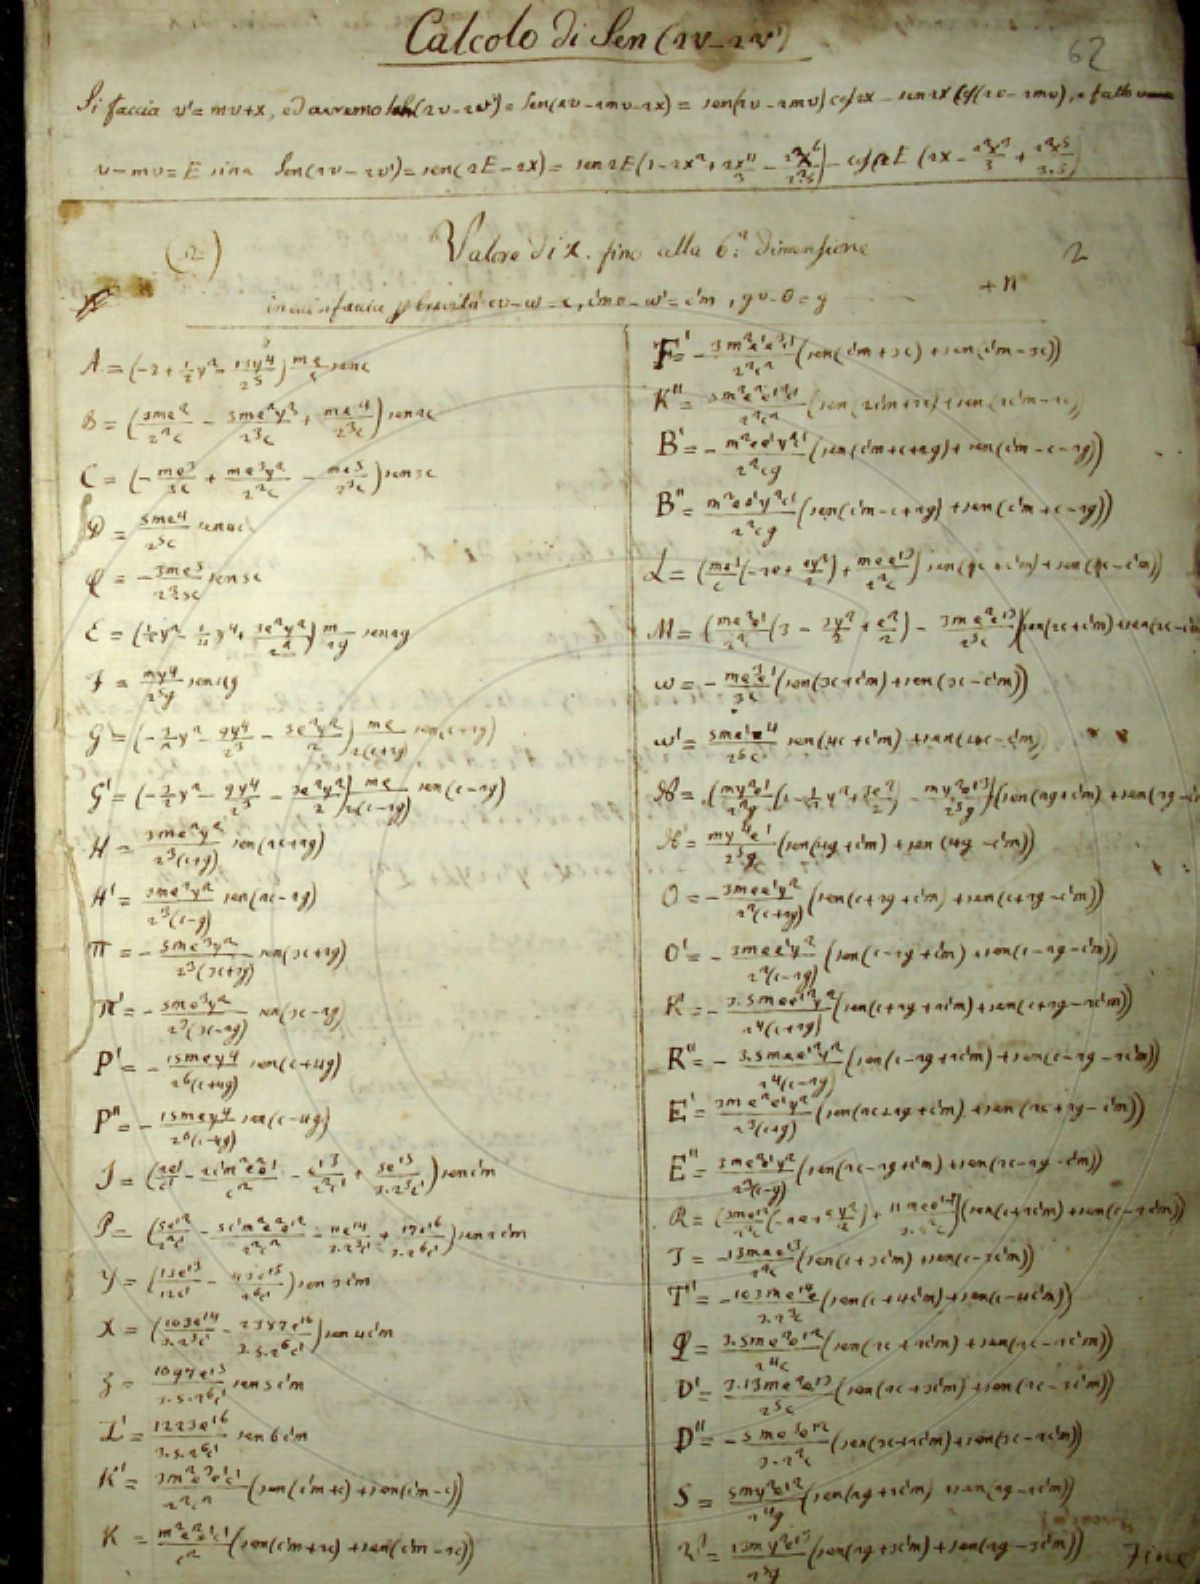 Calcolo di Sen (2v-2v')
62
Si faccia v' = mv+x, ed avremo Sen(2v-2v') = Sen(2v-2mv-2x) = sen(2v-2mv) cos 2x - sen 2x cos(2v-2mv), e fatto
v-mv = E sina Sen(2v-2v') = sen(2E-2x) = sen 2E (1-2x²+2x⁴/3 - 2²x⁶/3².5) - cos 2E (2x - 2²x³/3 + 2²x⁵/3.5)
(2)
Valore di x. fino alla 6:ª dimensione
2
in cui si faccia p brevità cv-ω = c, c'mv-ω' = c'm, gv-θ = g
+n
A = (-2+½y²-13y⁴/2⁵) me/c sen c
B = (3me²/2²c - 3me²y²/2³c + me⁴/2³c) sen 2c
C = (-me³/3c + me³y²/2²c - me⁵/2³c) sen 3c
D = 5me⁴/2⁵c sen 4c
Q = -3me⁵/2³5c sen 5c
E = (½y²-¼y⁴+3e²y²/2²) m/2g sen 2g
F = my⁴/2⁵g sen 4g
G = (-3/2y²-9y⁴/2³-3e²y²/2) me/2(c+2g) sen(c+2g)
G' = (-3/2y²-9y⁴/2³-3e²y²/2) me/2(c-2g) sen(c-2g)
H = 3me²y²/2³(c+g) sen(2c+2g)
H' = 3me²y²/2³(c-g) sen(2c-2g)
π = -5me³y²/2³(3c+2g) sen(3c+2g)
π' = -5me³y²/2³(3c-2g) sen(3c-2g)
P' = -15mey⁴/2⁶(c+4g) sen(c+4g)
P'' = -15mey⁴/2⁶(c-4g) sen(c-4g)
J = (2e'/c' - 2c'm²e²e'/c² - e'³/2²c' + 5e'⁵/3.2⁵c') sen c'm
P = (5e'²/2²c' - 5c'm²e²e'²/2²c² - 11e'⁴/3.2³c' + 17e'⁶/3.2⁶c') sen 2c'm
Y = (13e'³/12c' - 43e'⁵/2⁶c') sen 3c'm
X = (103e'⁴/3.2⁵c' - 2387e'⁶/3.5.2⁶c') sen 4c'm
Z = 1097e'⁵/3.5.2⁶c' sen 5c'm
I' = 1223e'⁶/3.5.2⁶c' sen 6c'm
K' = 3m²e³e'c'/2²c² (sen(c'm+c)+sen(c'm-c))
K = m²e²e'c'/c² (sen(c'm+2c)+sen(c'm-2c))
F' = -3m²e³e'c'/2²c² (sen(c'm+3c)+sen(c'm-3c))
K'' = 5m²e²e'²c'/2²c² (sen(2c'm+2c)+sen(2c'm-2c))
B' = -m²ee'y²c'/2²cg (sen(c'm+c+2g)+sen(c'm-c-2g))
B'' = m²ee'y²c'/2²cg (sen(c'm-c+2g)+sen(c'm+c-2g))
L = (me'/c(-2e+ey²/2)+mee'³/2²c) sen(c+c'm)+sen(c-c'm)
M = (me²e'/2²c(3-3y²/2+e²/2)-3me²e'³/2⁵c)(sen(2c+c'm)+sen(2c-c'm
ω = -me³e'/3c (sen(3c+c'm)+sen(3c-c'm))
ω' = 5me'e⁴/2⁵c sen(4c+c'm)+sen(4c-c'm)
N = (my²e'/2²g(1-½y²+3e²/2)-my²e'³/2⁵g)(sen(2g+c'm)+sen(2g-c'm
N' = my⁴e'/2⁵g (sen(4g+c'm)+sen(4g-c'm))
O = -3mee'y²/2²(c+2g) (sen(c+2g+c'm)+sen(c+2g-c'm))
O' = -3mee'y²/2²(c-2g) (sen(c-2g+c'm)+sen(c-2g-c'm))
R' = -3.5mee'²y²/2⁴(c+2g) (sen(c+2g+2c'm)+sen(c+2g-2c'm))
R'' = -3.5mee'²y²/2⁴(c-2g) (sen(c-2g+2c'm)+sen(c-2g-2c'm))
E' = 3me²e'y²/2³(c+g) (sen(2c+2g+c'm)+sen(2c+2g-c'm))
E'' = 3me²e'y²/2³(c-g) (sen(2c-2g+c'm)+sen(2c-2g-c'm))
R = (3me'²/2³c(-2e+ey²/2)+11mee'⁴/3.2²c)(sen(c+2c'm)+sen(c-2c'm))
T = -13mee'³/2²c (sen(c+3c'm)+sen(c-3c'm))
T' = -103me'⁴e/3.2³c (sen(c+4c'm)+sen(c-4c'm))
Q = 3.5me²e'²/2⁴c (sen(2c+2c'm)+sen(2c-2c'm))
D' = 3.13me²e'³/2⁵c (sen(2c+3c'm)+sen(2c-3c'm))
D'' = -5me³e'²/3.2²c (sen(3c+2c'm)+sen(3c-2c'm))
S = 5my²e'²/2⁴g (sen(2g+2c'm)+sen(2g-2c'm))
13my²e'³/2⁵g (sen(2g+3c'm)+sen(2g-3c'm))
Fine